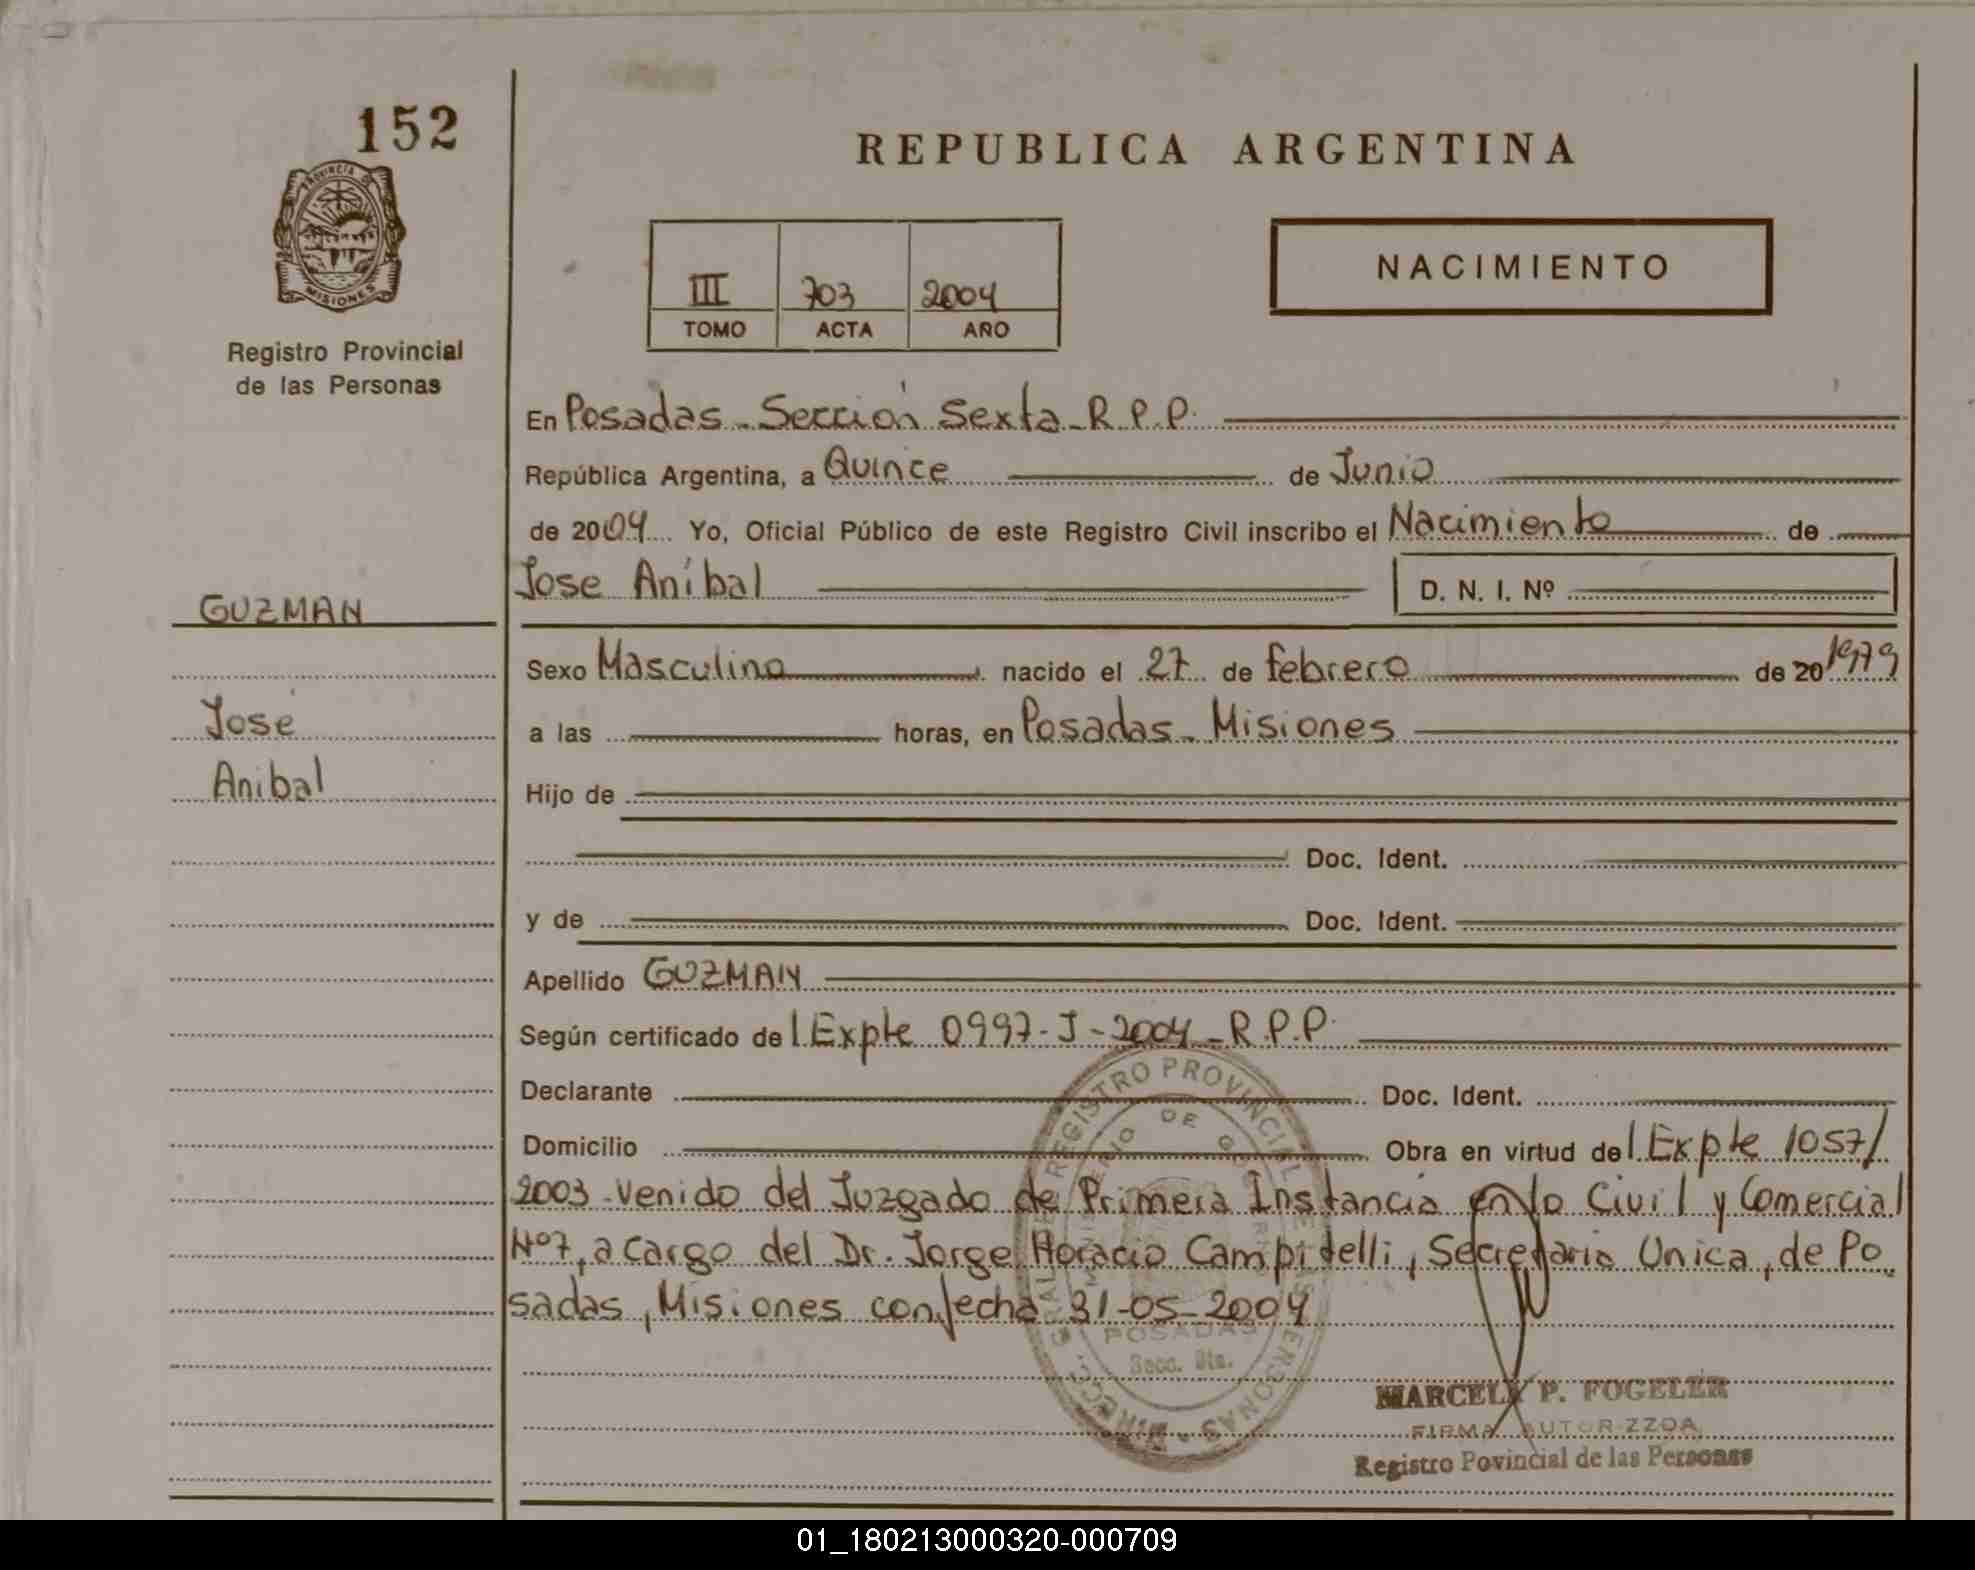 152
PROVINCIA DE
MISIONES
Registro Provincial
de las Personas
GUZMAN
Jose
Anibal
REPUBLICA ARGENTINA
III 703 2004
TOMO ACTA AÑO
NACIMIENTO
En Posadas - Sección Sexta - R.P.P.
República Argentina, a Quince de Junio
de 2004 Yo, Oficial Público de este Registro Civil inscribo el Nacimiento de
Jose Aníbal D. N. I. Nº
Sexo Masculino nacido el 27 de febrero de 20 1979
a las horas, en Posadas - Misiones
Hijo de
Doc. Ident.
y de Doc. Ident.
Apellido GUZMAN
Según certificado de l Expte 0997-J-2004 - R.P.P.
Declarante Doc. Ident.
Domicilio Obra en virtud del Expte 1057/
2003 - venido del Juzgado de Primera Instancia en lo Civil y Comercial
Nº7, a cargo del Dr. Jorge Horacio Campitelli, Secretaria Unica, de Po
sadas, Misiones con fecha 31-05-2004
DIRECC. GRAL. DE REGISTRO PROVINCIAL DE LAS PERSONAS
MINISTERIO DE GOBIERNO
POSADAS
Secc. 6ta.
MARCELA P. FOGELER
FIRMA AUTORIZZDA
Registro Povincial de las Personas
01_180213000320-000709